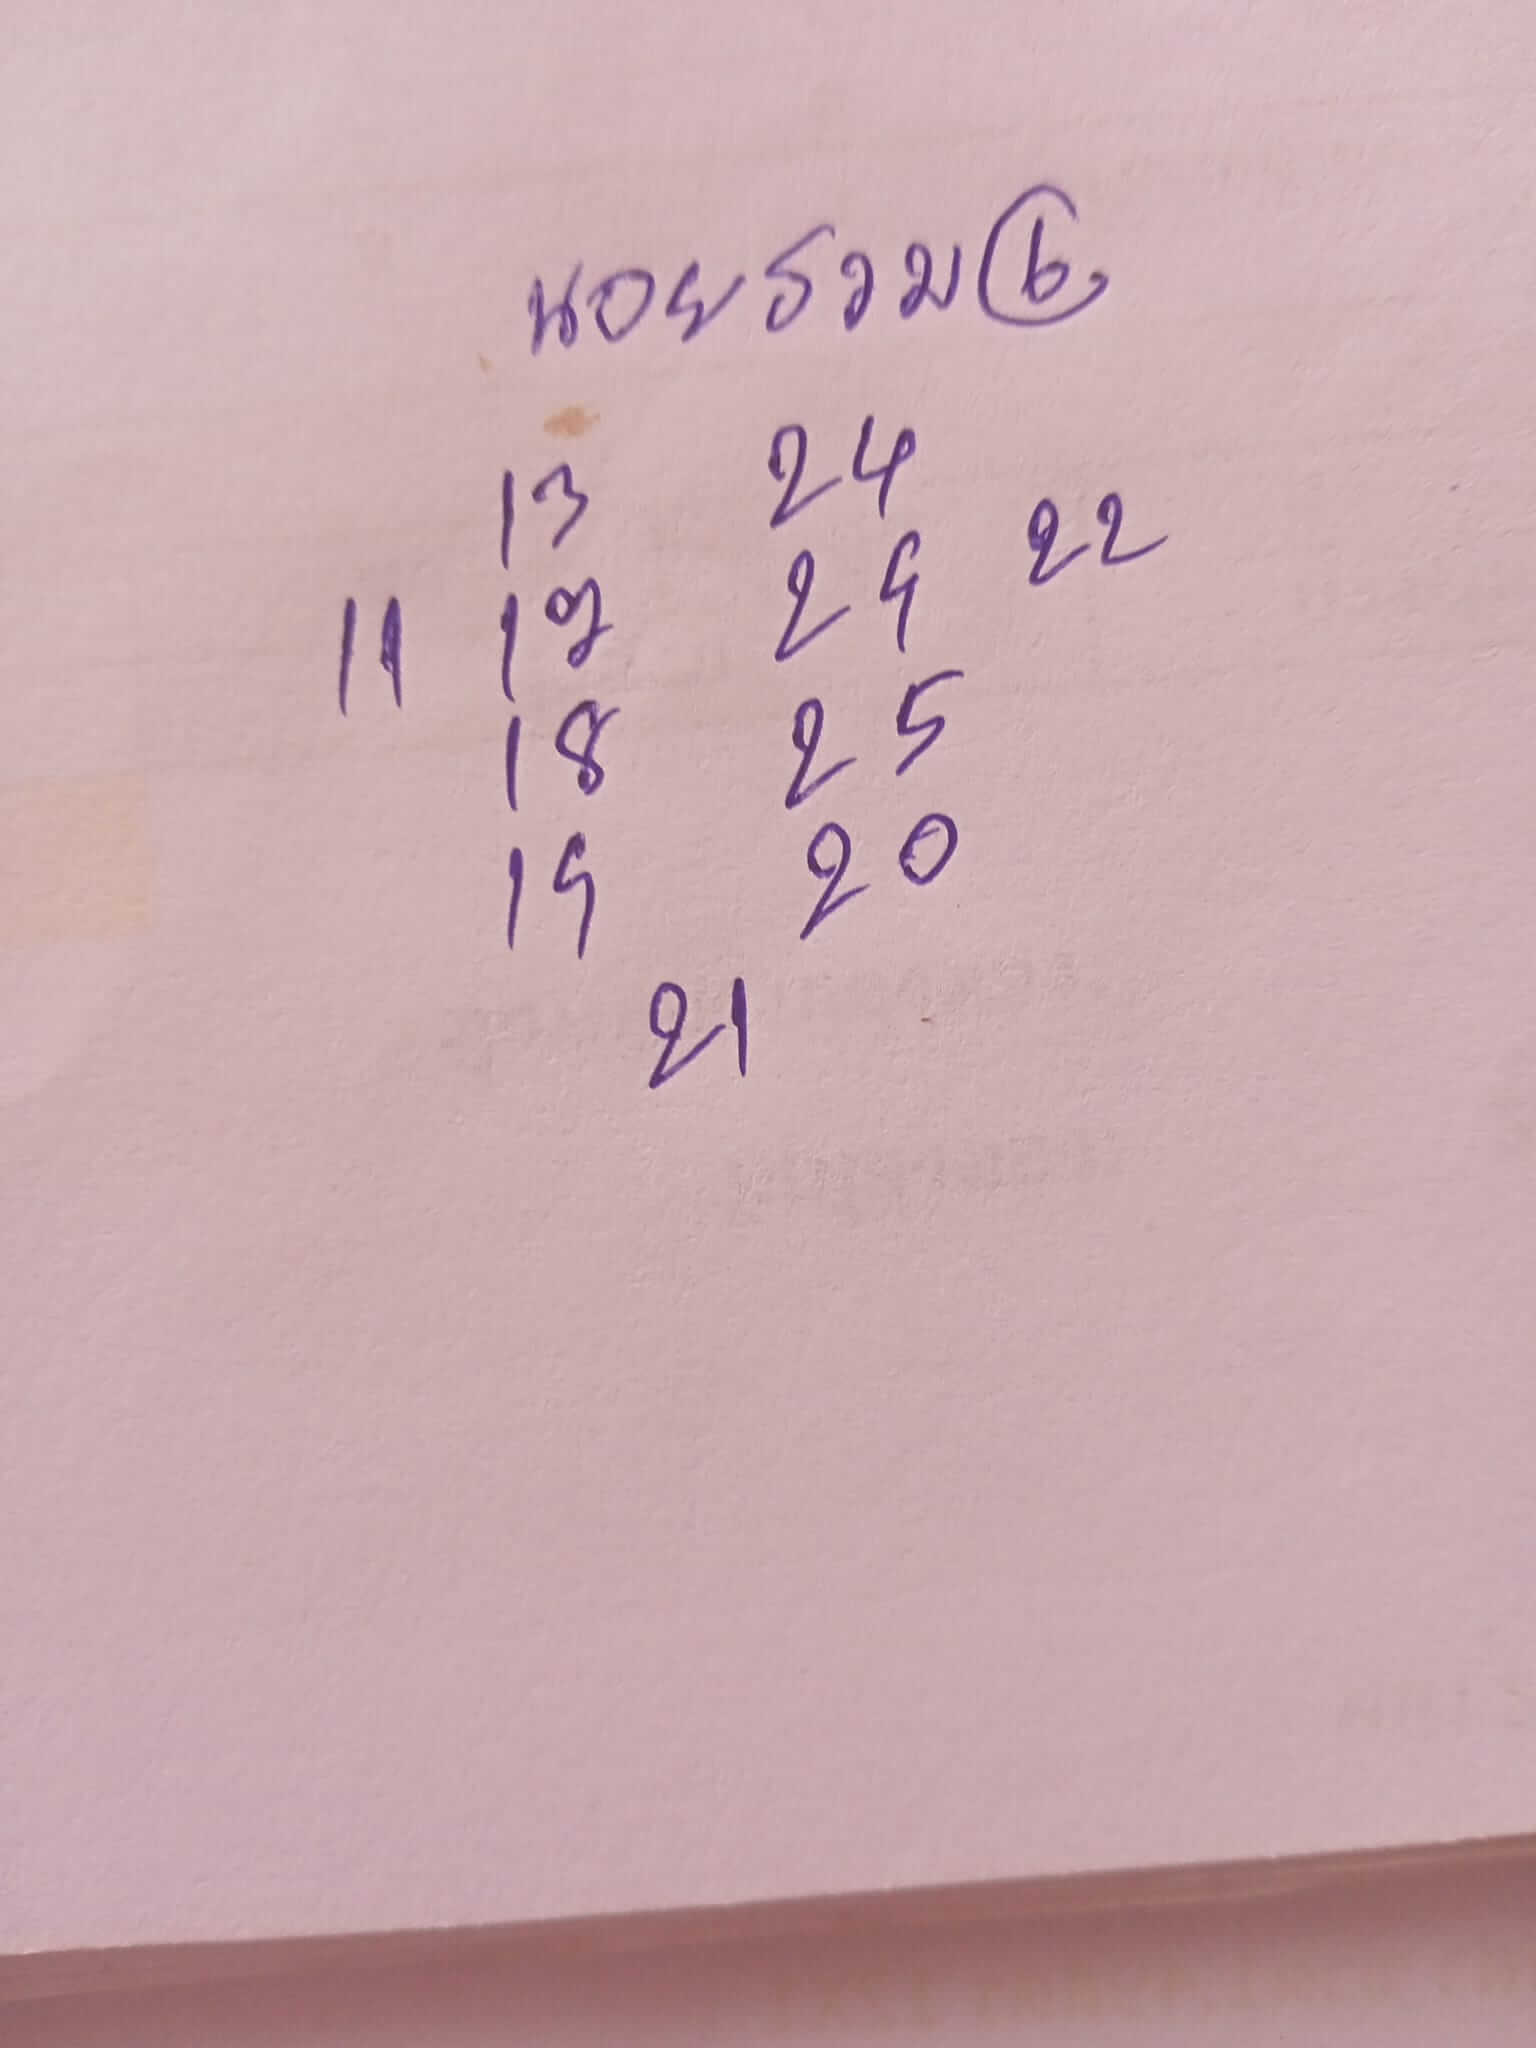 หอยรวม 6
13 24
22
11 12 29
18 25
19 20
21